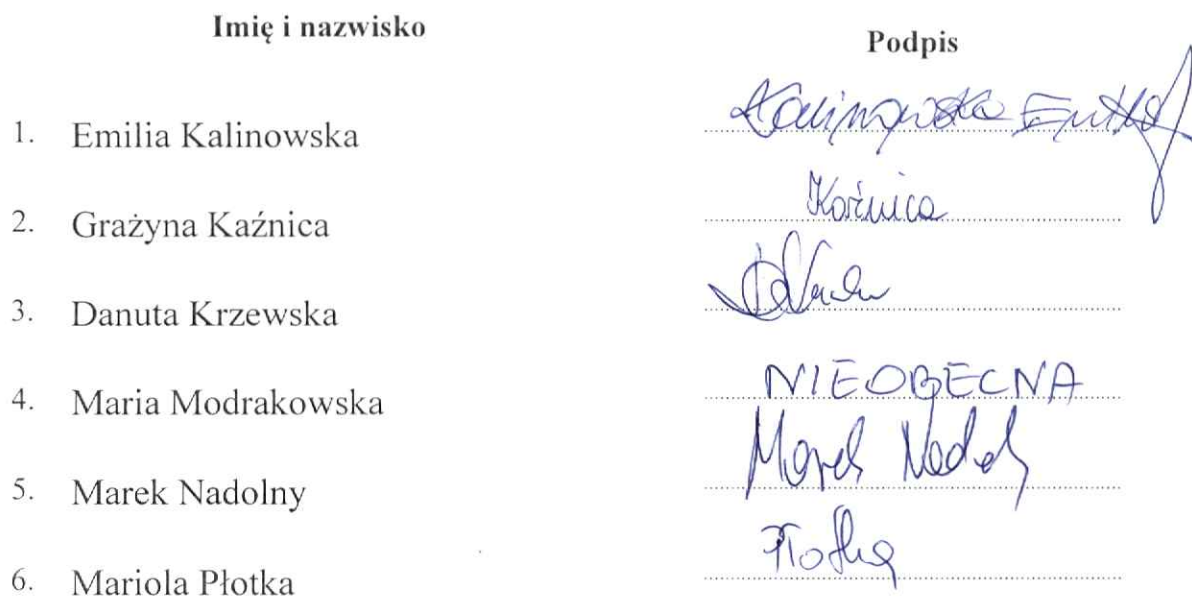 Imię i nazwisko Podpis
1. Emilia Kalinowska Kalinowska Emilia
2. Grażyna Kaźnica Kaźnica
3. Danuta Krzewska
4. Maria Modrakowska NIEOBECNA
5. Marek Nadolny Marek Nadolny
6. Mariola Płotka Płotka